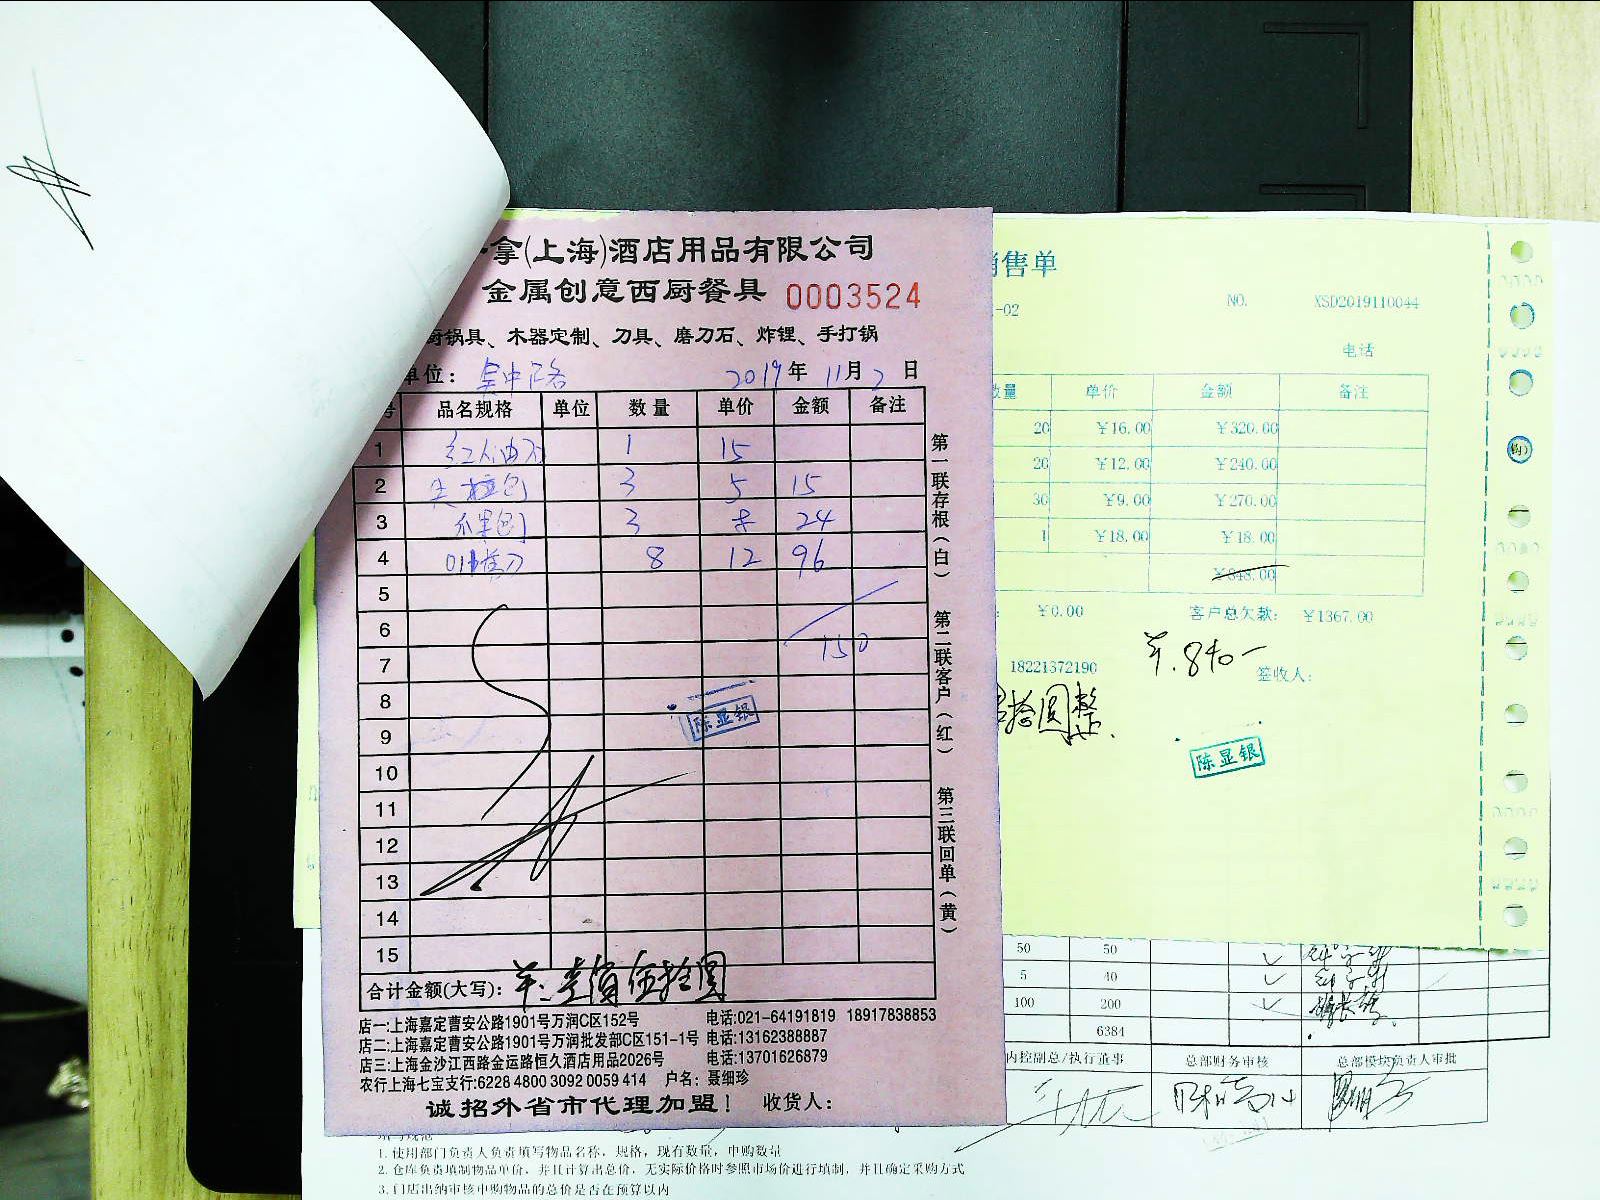 拿(上海)酒店用品有限公司
金属创意西厨餐具 0003524
厨锅具、木器定制、刀具、磨刀石、炸锂、手打锅
单位: 吴中路 2019年11月2日
品名规格 单位 数量 单价 金额 备注
1 1 15
2 3 5 15
3 3 8 24
4 8 12 96
5
6
7 150
8
9
10
11
12
13
14
15
陈显银
合计金额(大写): 羊:壹佰伍拾圆
第一联存根(白) 第二联客户(红) 第三联回单(黄)
店一:上海嘉定曹安公路1901号万润C区152号 电话:021-64191819 18917838853
店二:上海嘉定曹安公路1901号万润批发部C区151-1号 电话:13162388887
店三:上海金沙江西路金运路恒久酒店用品2026号 电话:13701626879
农行上海七宝支行:6228 4800 3092 0059 414 户名: 聂细珍
诚招外省市代理加盟! 收货人:
销售单
-02 NO. XSD2019110044
电话
数量 单价 金额 备注
20 ¥16.00 ¥320.00
20 ¥12.00 ¥240.00
30 ¥9.00 ¥270.00
1 ¥18.00 ¥18.00
¥848.00
: ¥0.00 客户总欠款: ¥1367.00
18221372190 羊.840- 签收人:
拾圆整.
陈显银
50 50
5 40
100 200
6384
内控副总/执行董事 总部财务审核 总部模块负责人审批
填写规范
1. 使用部门负责人负责填写物品名称, 规格, 现有数量, 申购数量
2. 仓库负责填制物品单价, 并且计算出总价, 无实际价格时参照市场价进行填制, 并且确定采购方式
3. 门店出纳审核申购物品的总价是否在预算以内